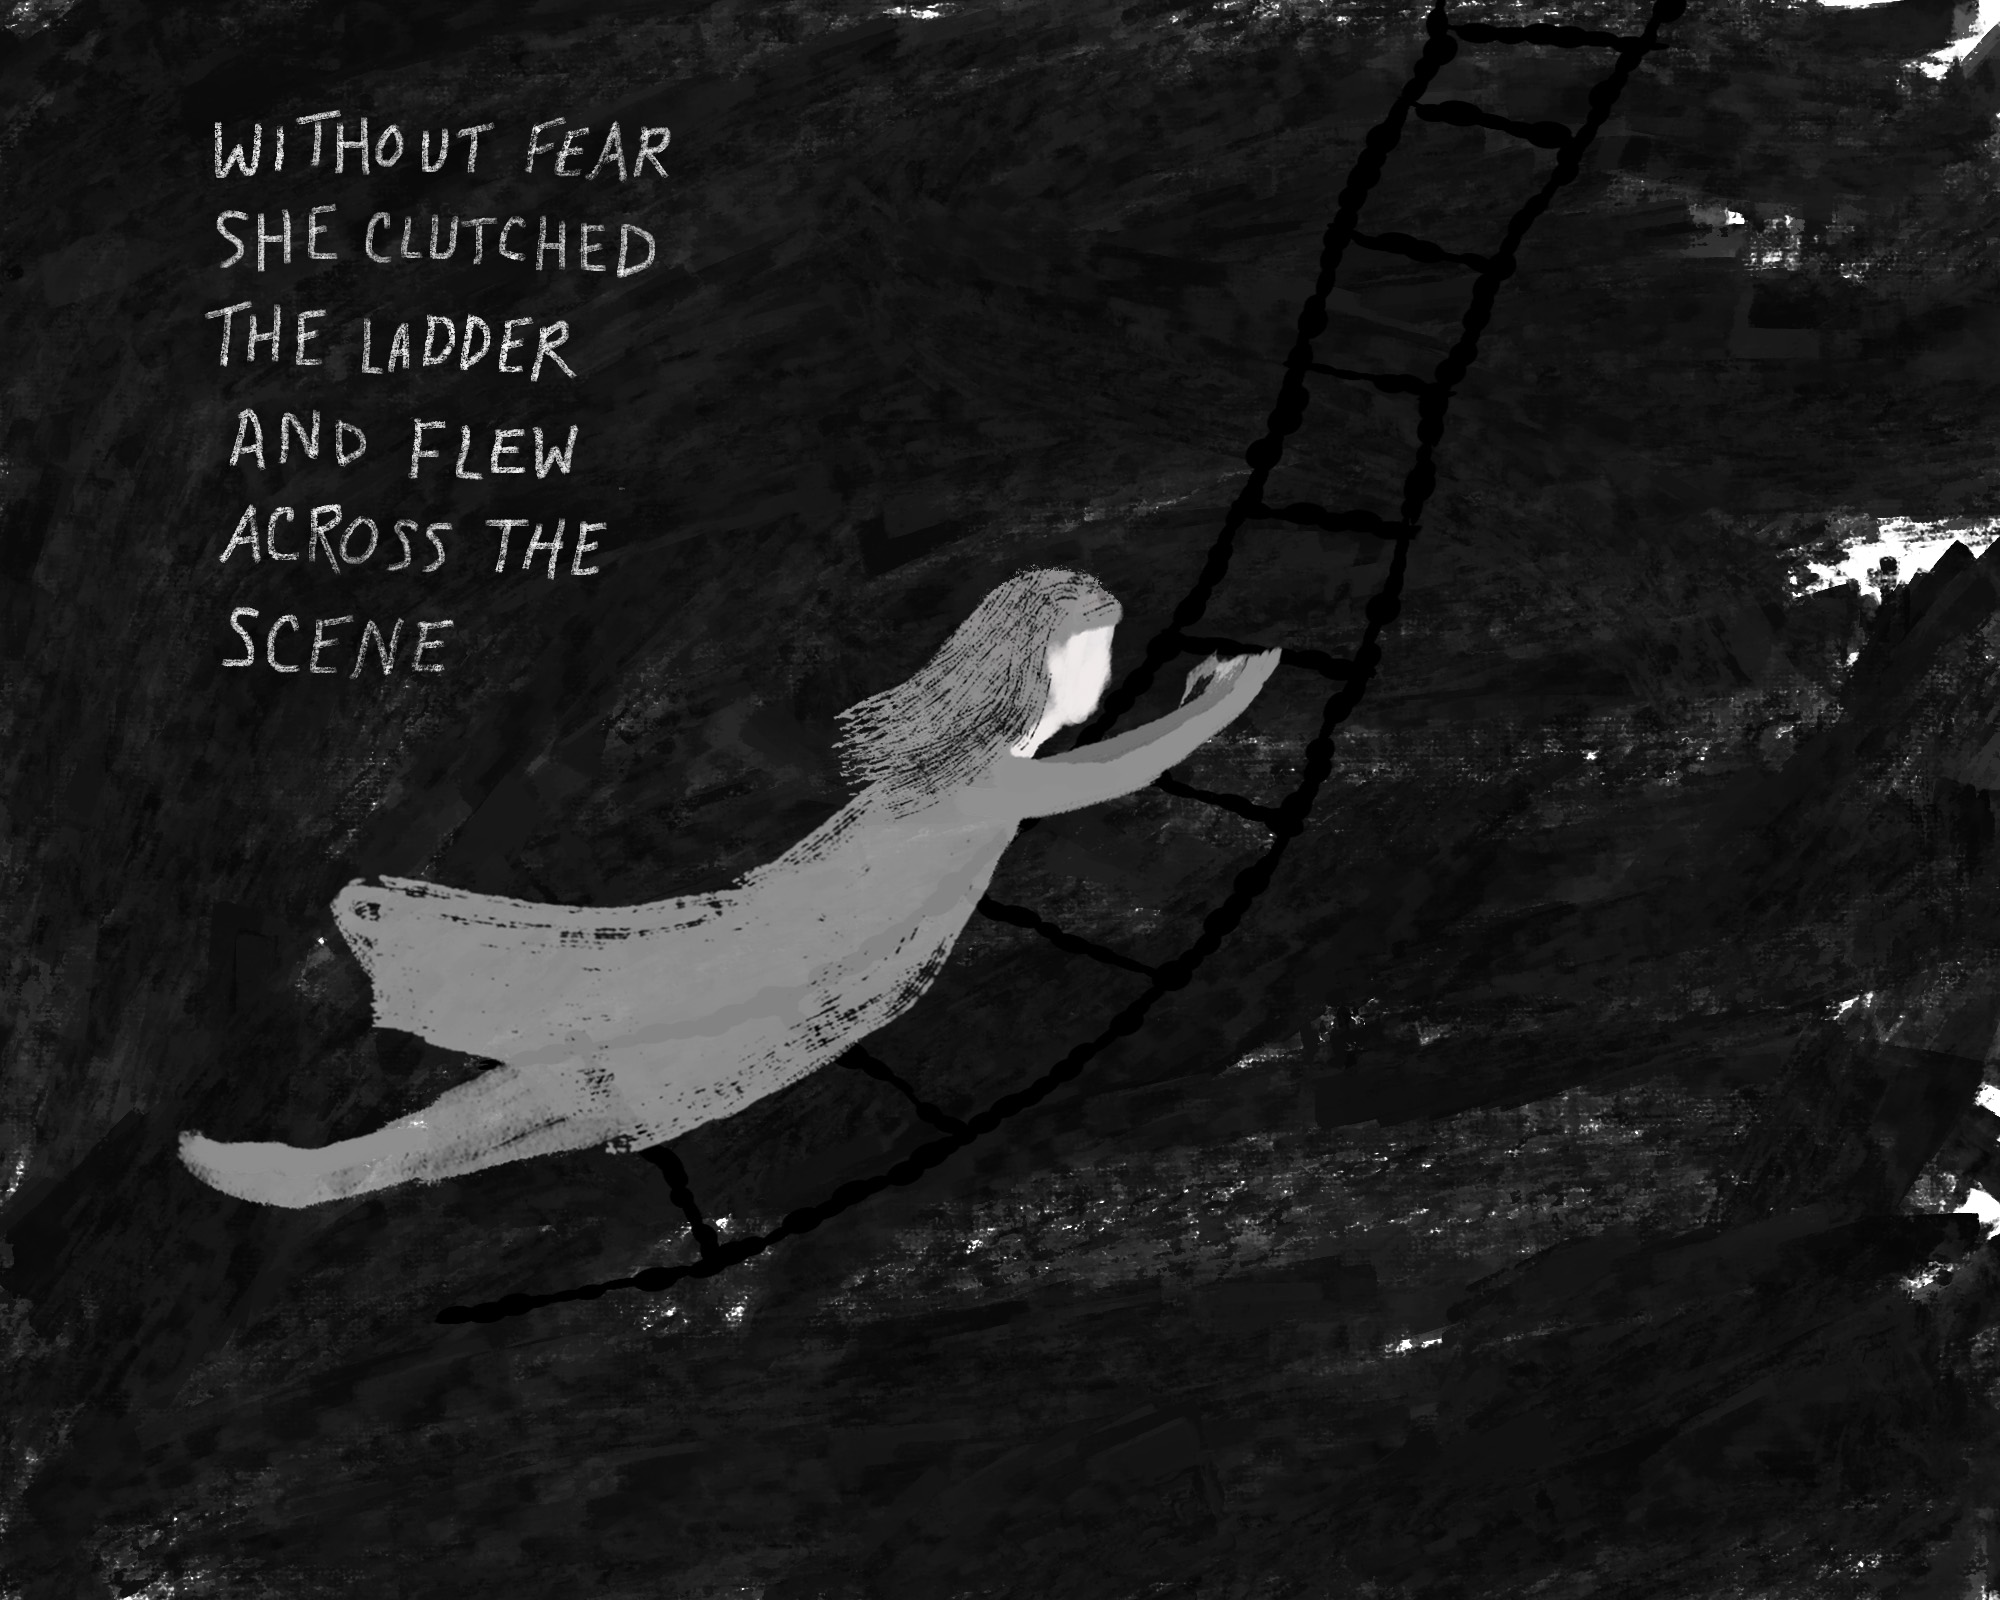 WITHOUT FEAR
SHE CLUTCHED
THE LADDER
AND FLEW
ACROSS THE
SCENE